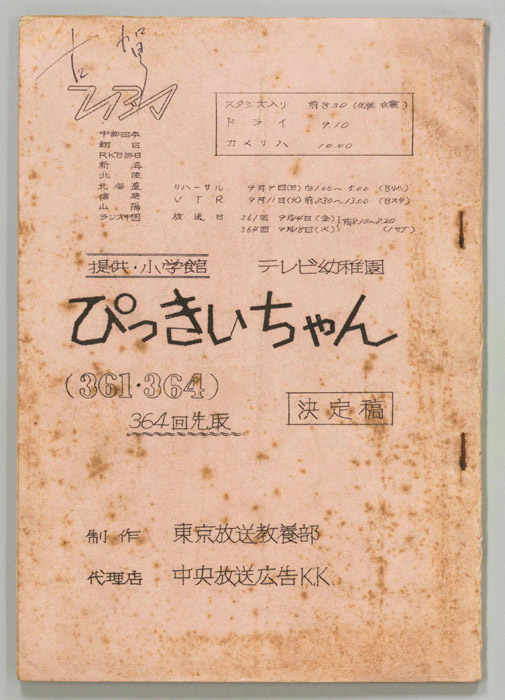 古賀
TBS
スタジオ入り 前8.30 (化粧 衣裳)
ドライ 9.10
カメリハ 10.00
中部日本
朝日
RKB毎日
新潟
北陸
北海道 リハーサル 9月9日(日) 后1.00〜5.00 (Bリハ)
信越 VTR 9月11日(火) 前8.30〜13.00 (Bスタ)
山陽
ラジオ中国 放送日 361回 9月14日(金) 前8.10〜8.20
364回 9月18日(火)
提供・小学館 テレビ幼稚園
ぴっきいちゃん
(361・364)
364回先取
決定稿
制作 東京放送教養部
代理店 中央放送広告K.K.